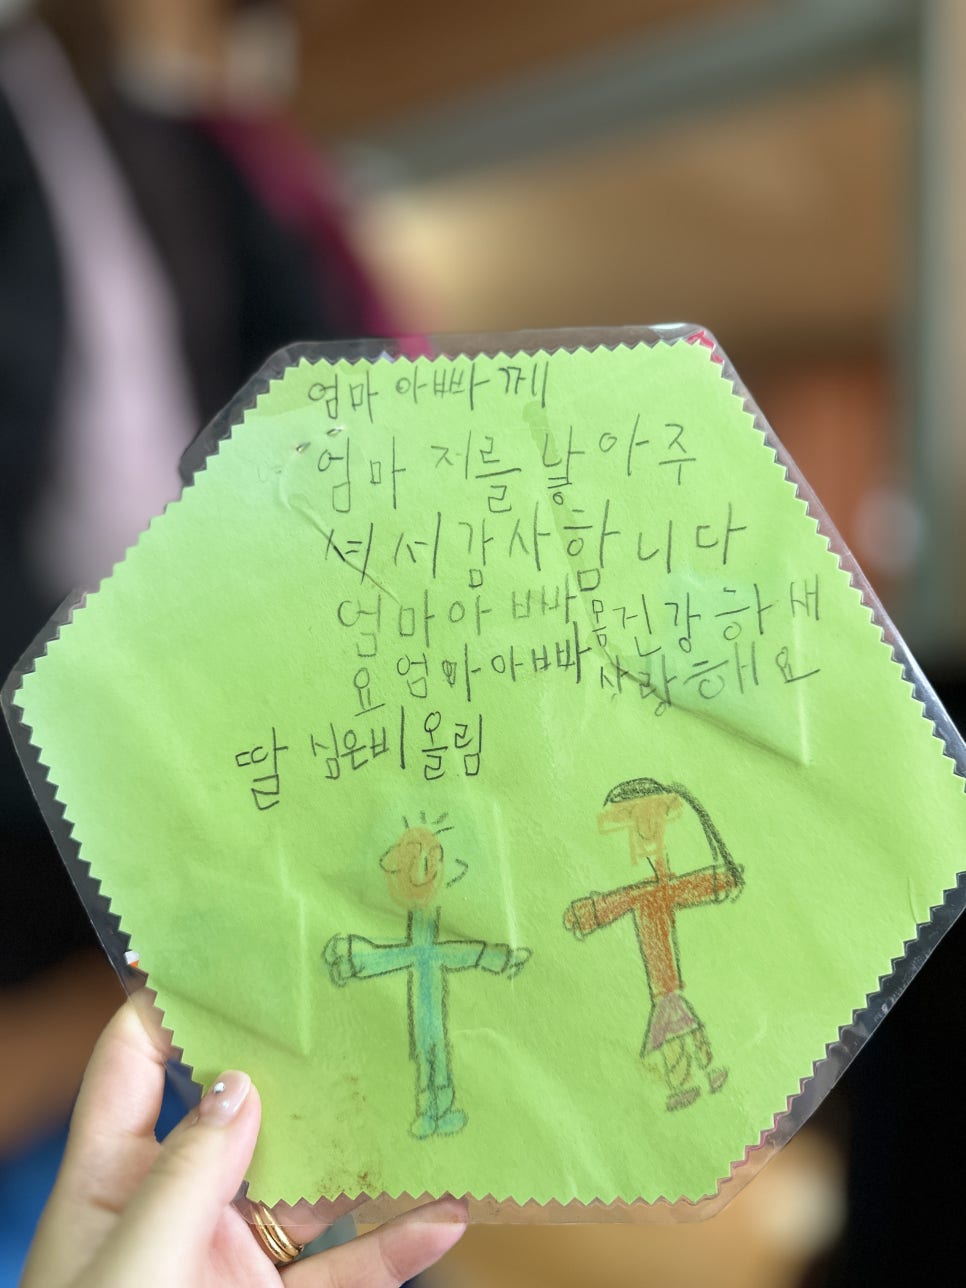 엄마 아빠 께
엄마 저를 낳아주
셔서 감사함니다
엄마 아빠 몸건강하새
요 엄마 아빠 사랑해요
딸 심은비 올림